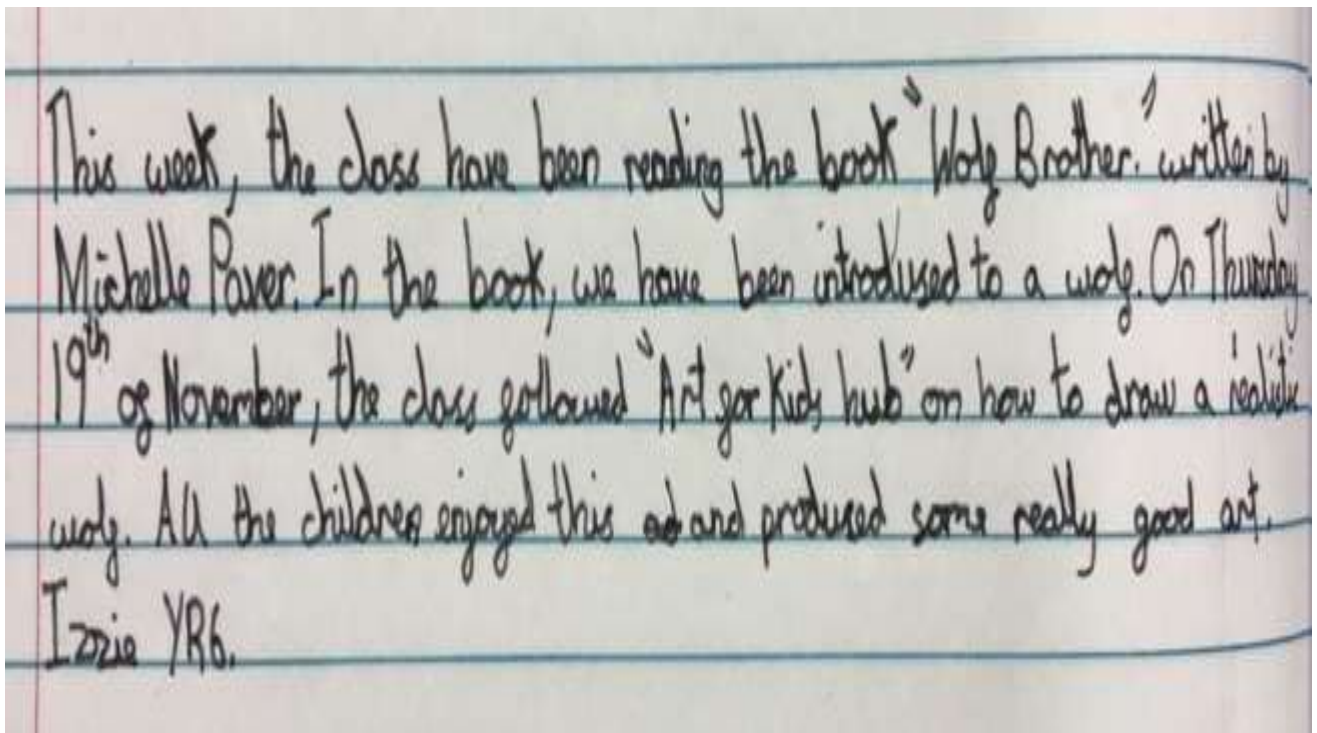 This week, the class have been reading the book "Wolf Brother." written by
Michelle Paver. In the book, we have been introdused to a wolf. On Thursday
19th of November, the class followed "Art for Kids hub" on how to draw a realistic
wolf. All the children enjoyed this and prodused some really good art.
Izzie YR6.